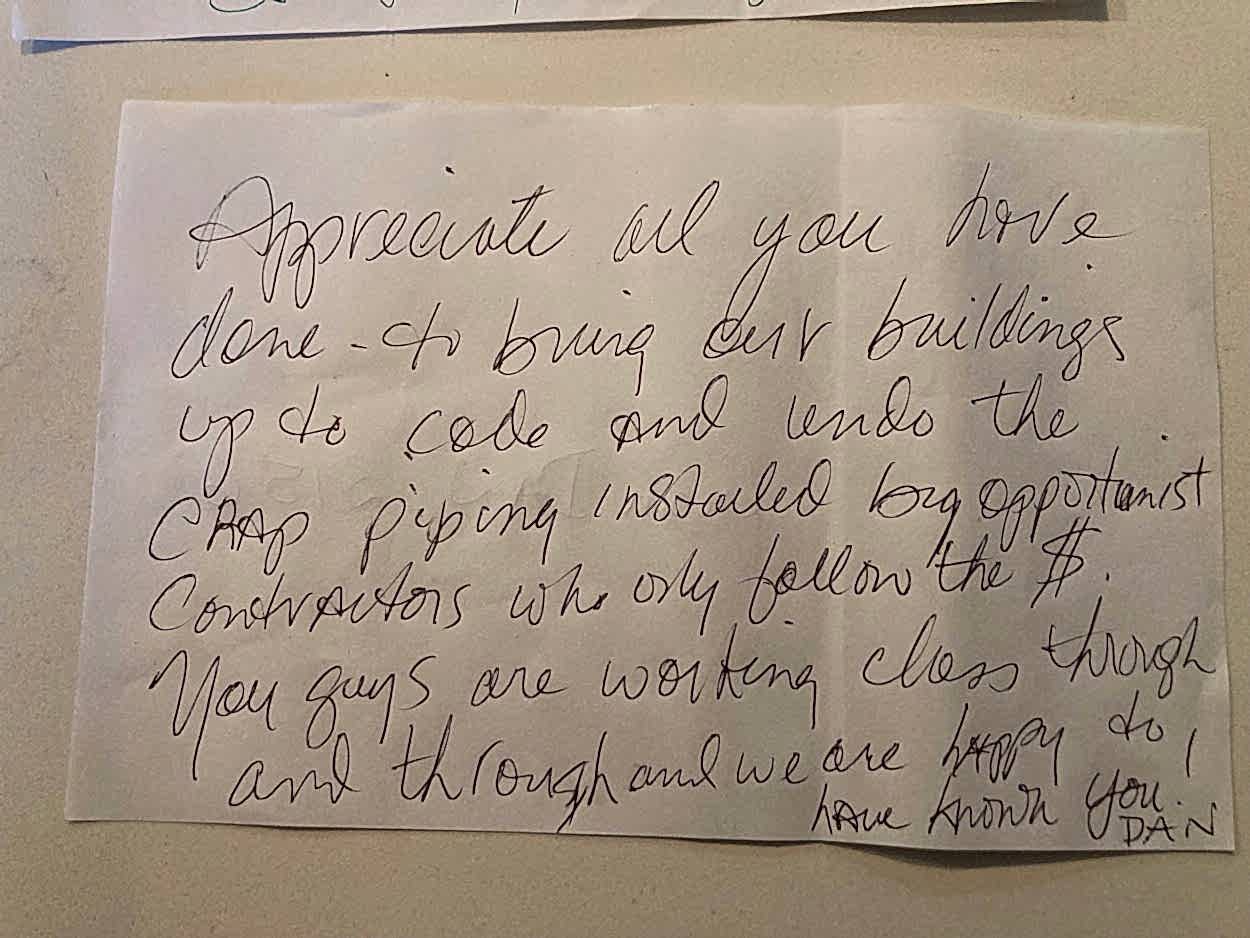 Appreciate all you have
done - to bring our buildings
up to code and undo the
CRAp piping installed by opportunist
Contractors who only follow the $.
You guys are working class through
and through and we are happy to
have known you!
DAN